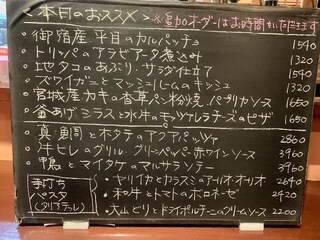 <本日のおススメ> ※追加オーダーはお時間をいただきます
・御宿産 平目のカルパッチョ 1540
・トリッパのアラビアータ煮込み 1320
・地タコのあぶり、サラダ仕立て 1540
・ズワイガニとマッシュルームのキッシュ 1320
・宮城産カキの香草パン粉焼 パプリカソース 1650
・釜あげシラスと水牛モッツァレラチーズのピザ 1650
・真鯛とホタテのアクアパッツァ 2860
・牛ヒレのグリル グリーンペッパー赤ワインソース 3960
・鴨とマイタケのマルサラソテー 3960
手打ちパスタ(タリアテッレ)
・ヤリイカとカラスミのアーリオオーリオ 2640
・和牛とトマトのボロネーゼ 2420
・大山どりとドライポルチーニのクリームソース 2200